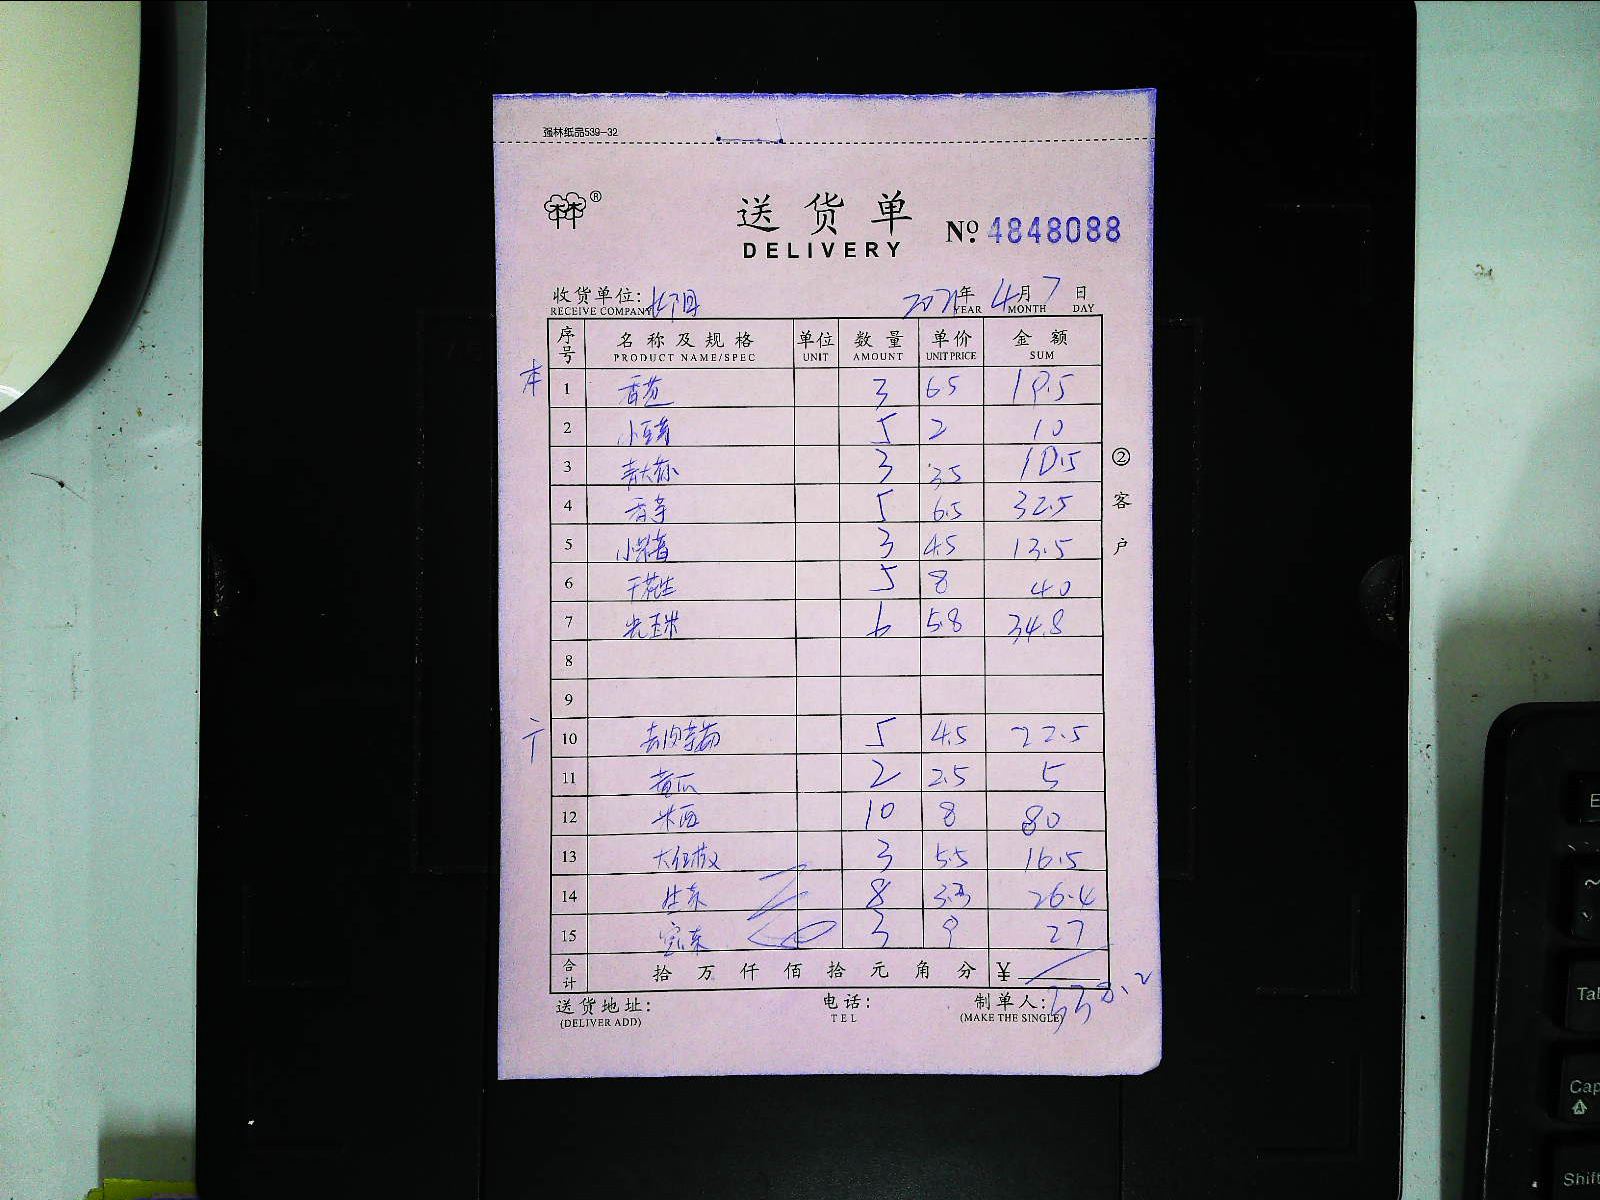 强林纸品539-32
林®
送货单
DELIVERY
№ 4848088
收货单位:
RECEIVE COMPANY
2021年 4月 7日
YEAR MONTH DAY
序号 名称及规格 单位 数量 单价 金额
PRODUCT NAME/SPEC UNIT AMOUNT UNIT PRICE SUM
本
1 香芒 3 65 19.5
2 小豆芽 5 2 10
3 青大 3 3.5 10.5
4 香芋 5 6.5 32.5
5 小 3 4.5 13.5
6 干花生 5 8 40
7 光玉米 6 5.8 34.8
8
9
10 5 4.5 22.5
11 黄瓜 2 2.5 5
12 米西 10 8 80
13 3 5.5 16.5
14 生菜 8 3.3 26.4
15 3 9 27
合计 拾万仟佰拾元角分 ¥
338.2
②客户
送货地址: 电话: 制单人:
(DELIVER ADD) TEL (MAKE THE SINGLE)
Tab
Cap
Shift